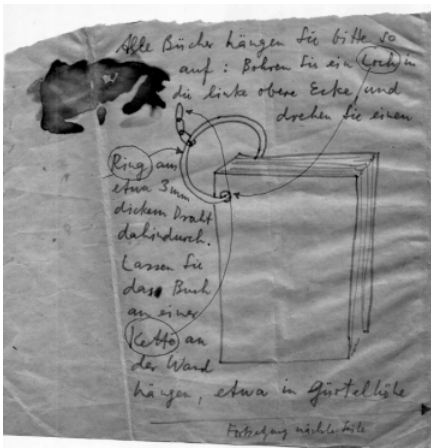 Alle Bücher hängen Sie bitte so
auf: Bohren Sie ein Loch in
die linke obere Ecke und
drehen Sie einen
Ring aus
etwa 3mm
dickem Draht
dahindurch.
Lassen Sie
das Buch
an einer
Kette an
der Wand
hängen, etwa in Gürtelhöhe
Fortsetzung nächste Seite